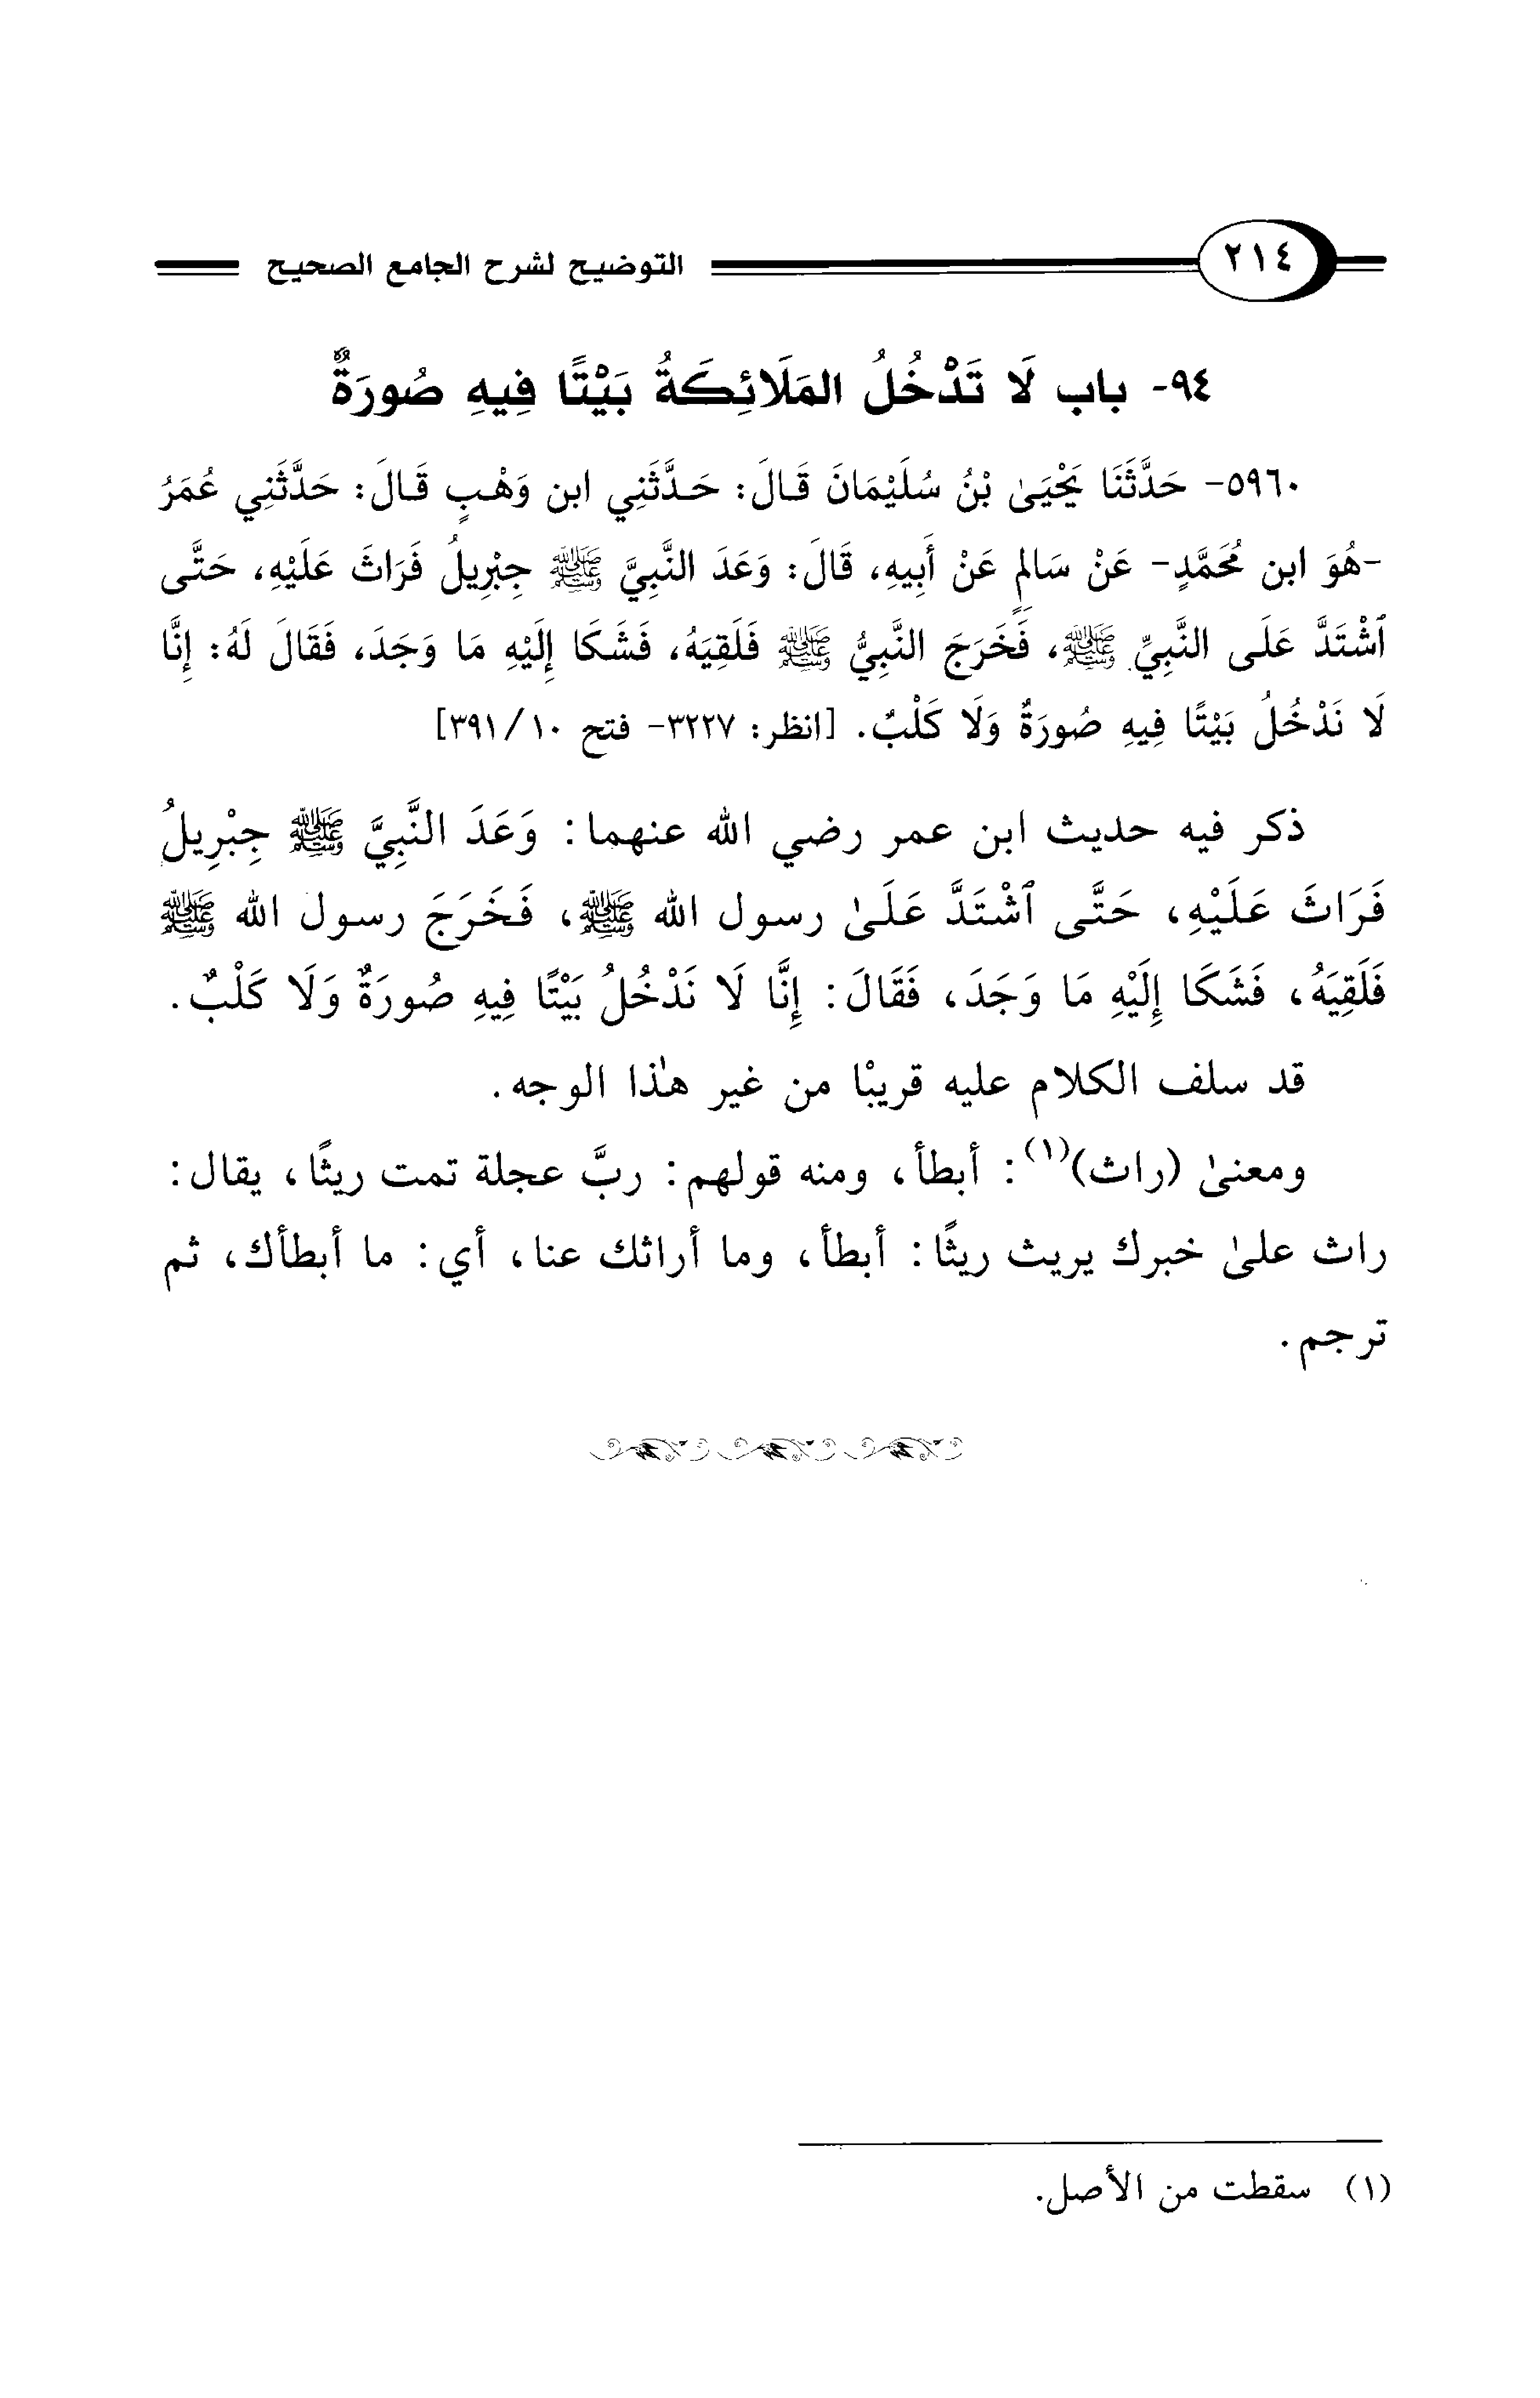 ٢١٤ التوضيح لشرح الجامع الصحيح
٩٤- باب لَا تَدْخُلُ المَلَائِكَةُ بَيْتًا فِيهِ صُورَةٌ
٥٩٦٠- حَدَّثَنَا يَحْيَىٰ بْنُ سُلَيْمَانَ قَالَ: حَدَّثَنِي ابن وَهْبٍ قَالَ: حَدَّثَنِي عُمَرُ
-هُوَ ابن مُحَمَّدٍ- عَنْ سَالِمٍ عَنْ أَبِيهِ، قَالَ: وَعَدَ النَّبِيَّ ﷺ جِبْرِيلُ فَرَاثَ عَلَيْهِ، حَتَّى
ٱشْتَدَّ عَلَى النَّبِيِّ ﷺ، فَخَرَجَ النَّبِيُّ ﷺ فَلَقِيَهُ، فَشَكَا إِلَيْهِ مَا وَجَدَ، فَقَالَ لَهُ: إِنَّا
لَا نَدْخُلُ بَيْتًا فِيهِ صُورَةٌ وَلَا كَلْبٌ. [انظر: ٣٢٢٧- فتح ١٠/ ٣٩١]
ذكر فيه حديث ابن عمر رضي الله عنهما: وَعَدَ النَّبِيَّ ﷺ جِبْرِيلُ
فَرَاثَ عَلَيْهِ، حَتَّى ٱشْتَدَّ عَلَىٰ رسول الله ﷺ، فَخَرَجَ رسول الله ﷺ
فَلَقِيَهُ، فَشَكَا إِلَيْهِ مَا وَجَدَ، فَقَالَ: إِنَّا لَا نَدْخُلُ بَيْتًا فِيهِ صُورَةٌ وَلَا كَلْبٌ.
قد سلف الكلام عليه قريبًا من غير هٰذا الوجه.
ومعنىٰ (راث)(١): أبطأ، ومنه قولهم: ربَّ عجلة تمت ريثًا، يقال:
راث علىٰ خبرك يريث ريثًا: أبطأ، وما أراثك عنا، أي: ما أبطأك، ثم
ترجم.
(١) سقطت من الأصل.